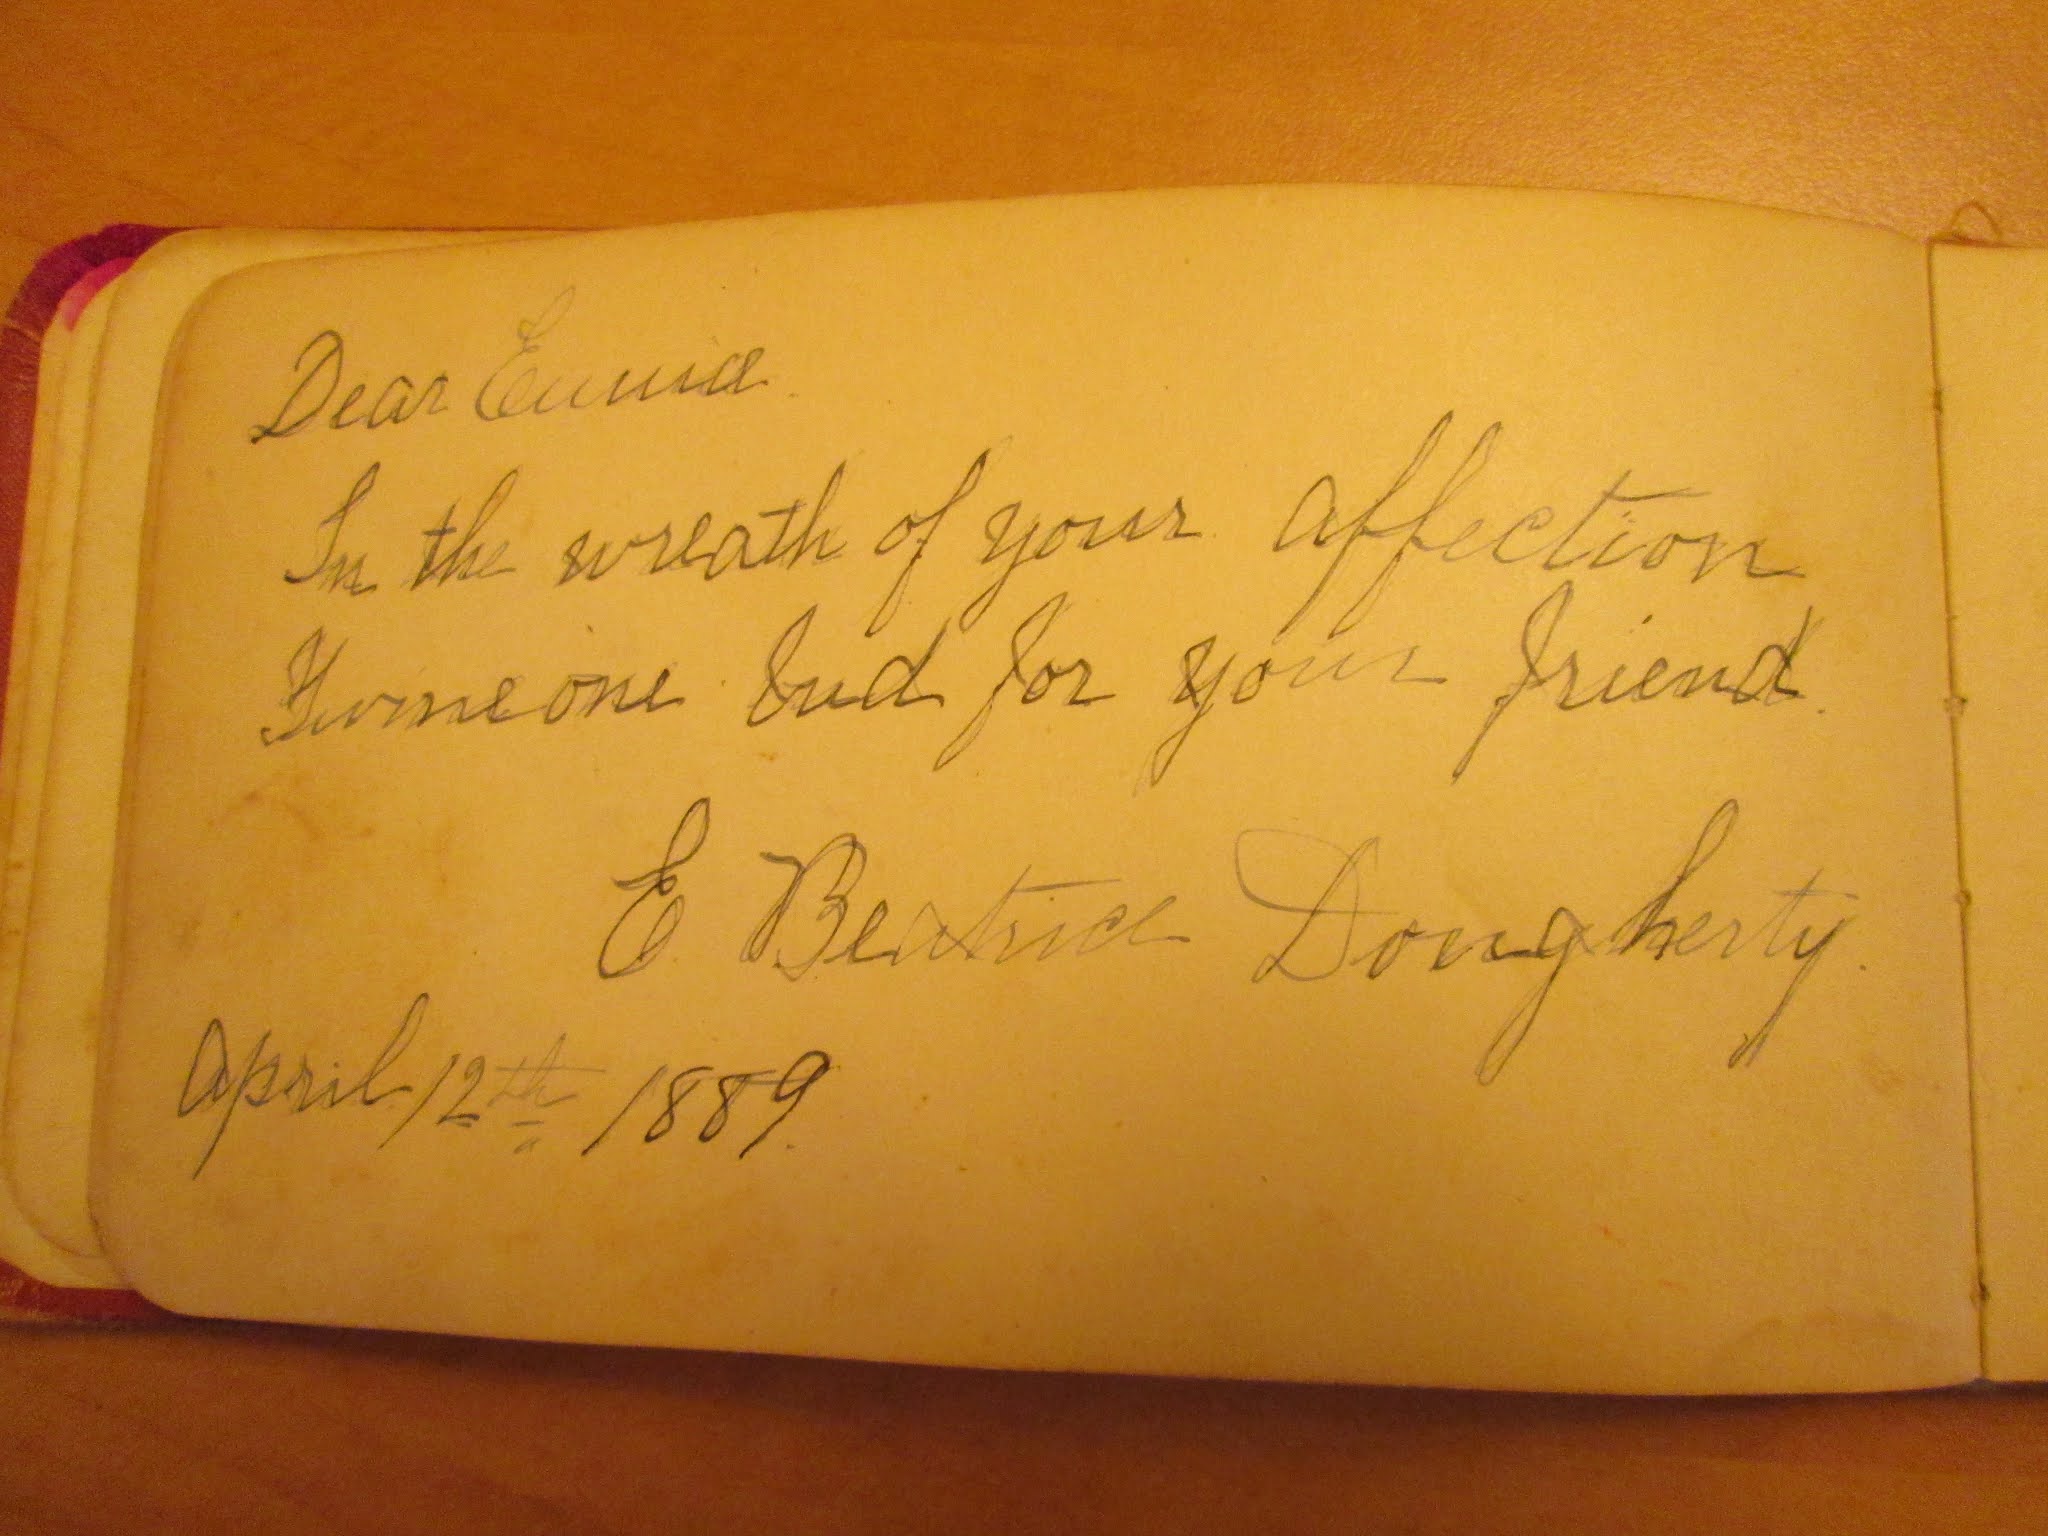 Dear Eunice.
In the wreath of your affection
Twine one bud for your friend.
E Beatrice Dougherty.
April 12th 1889.